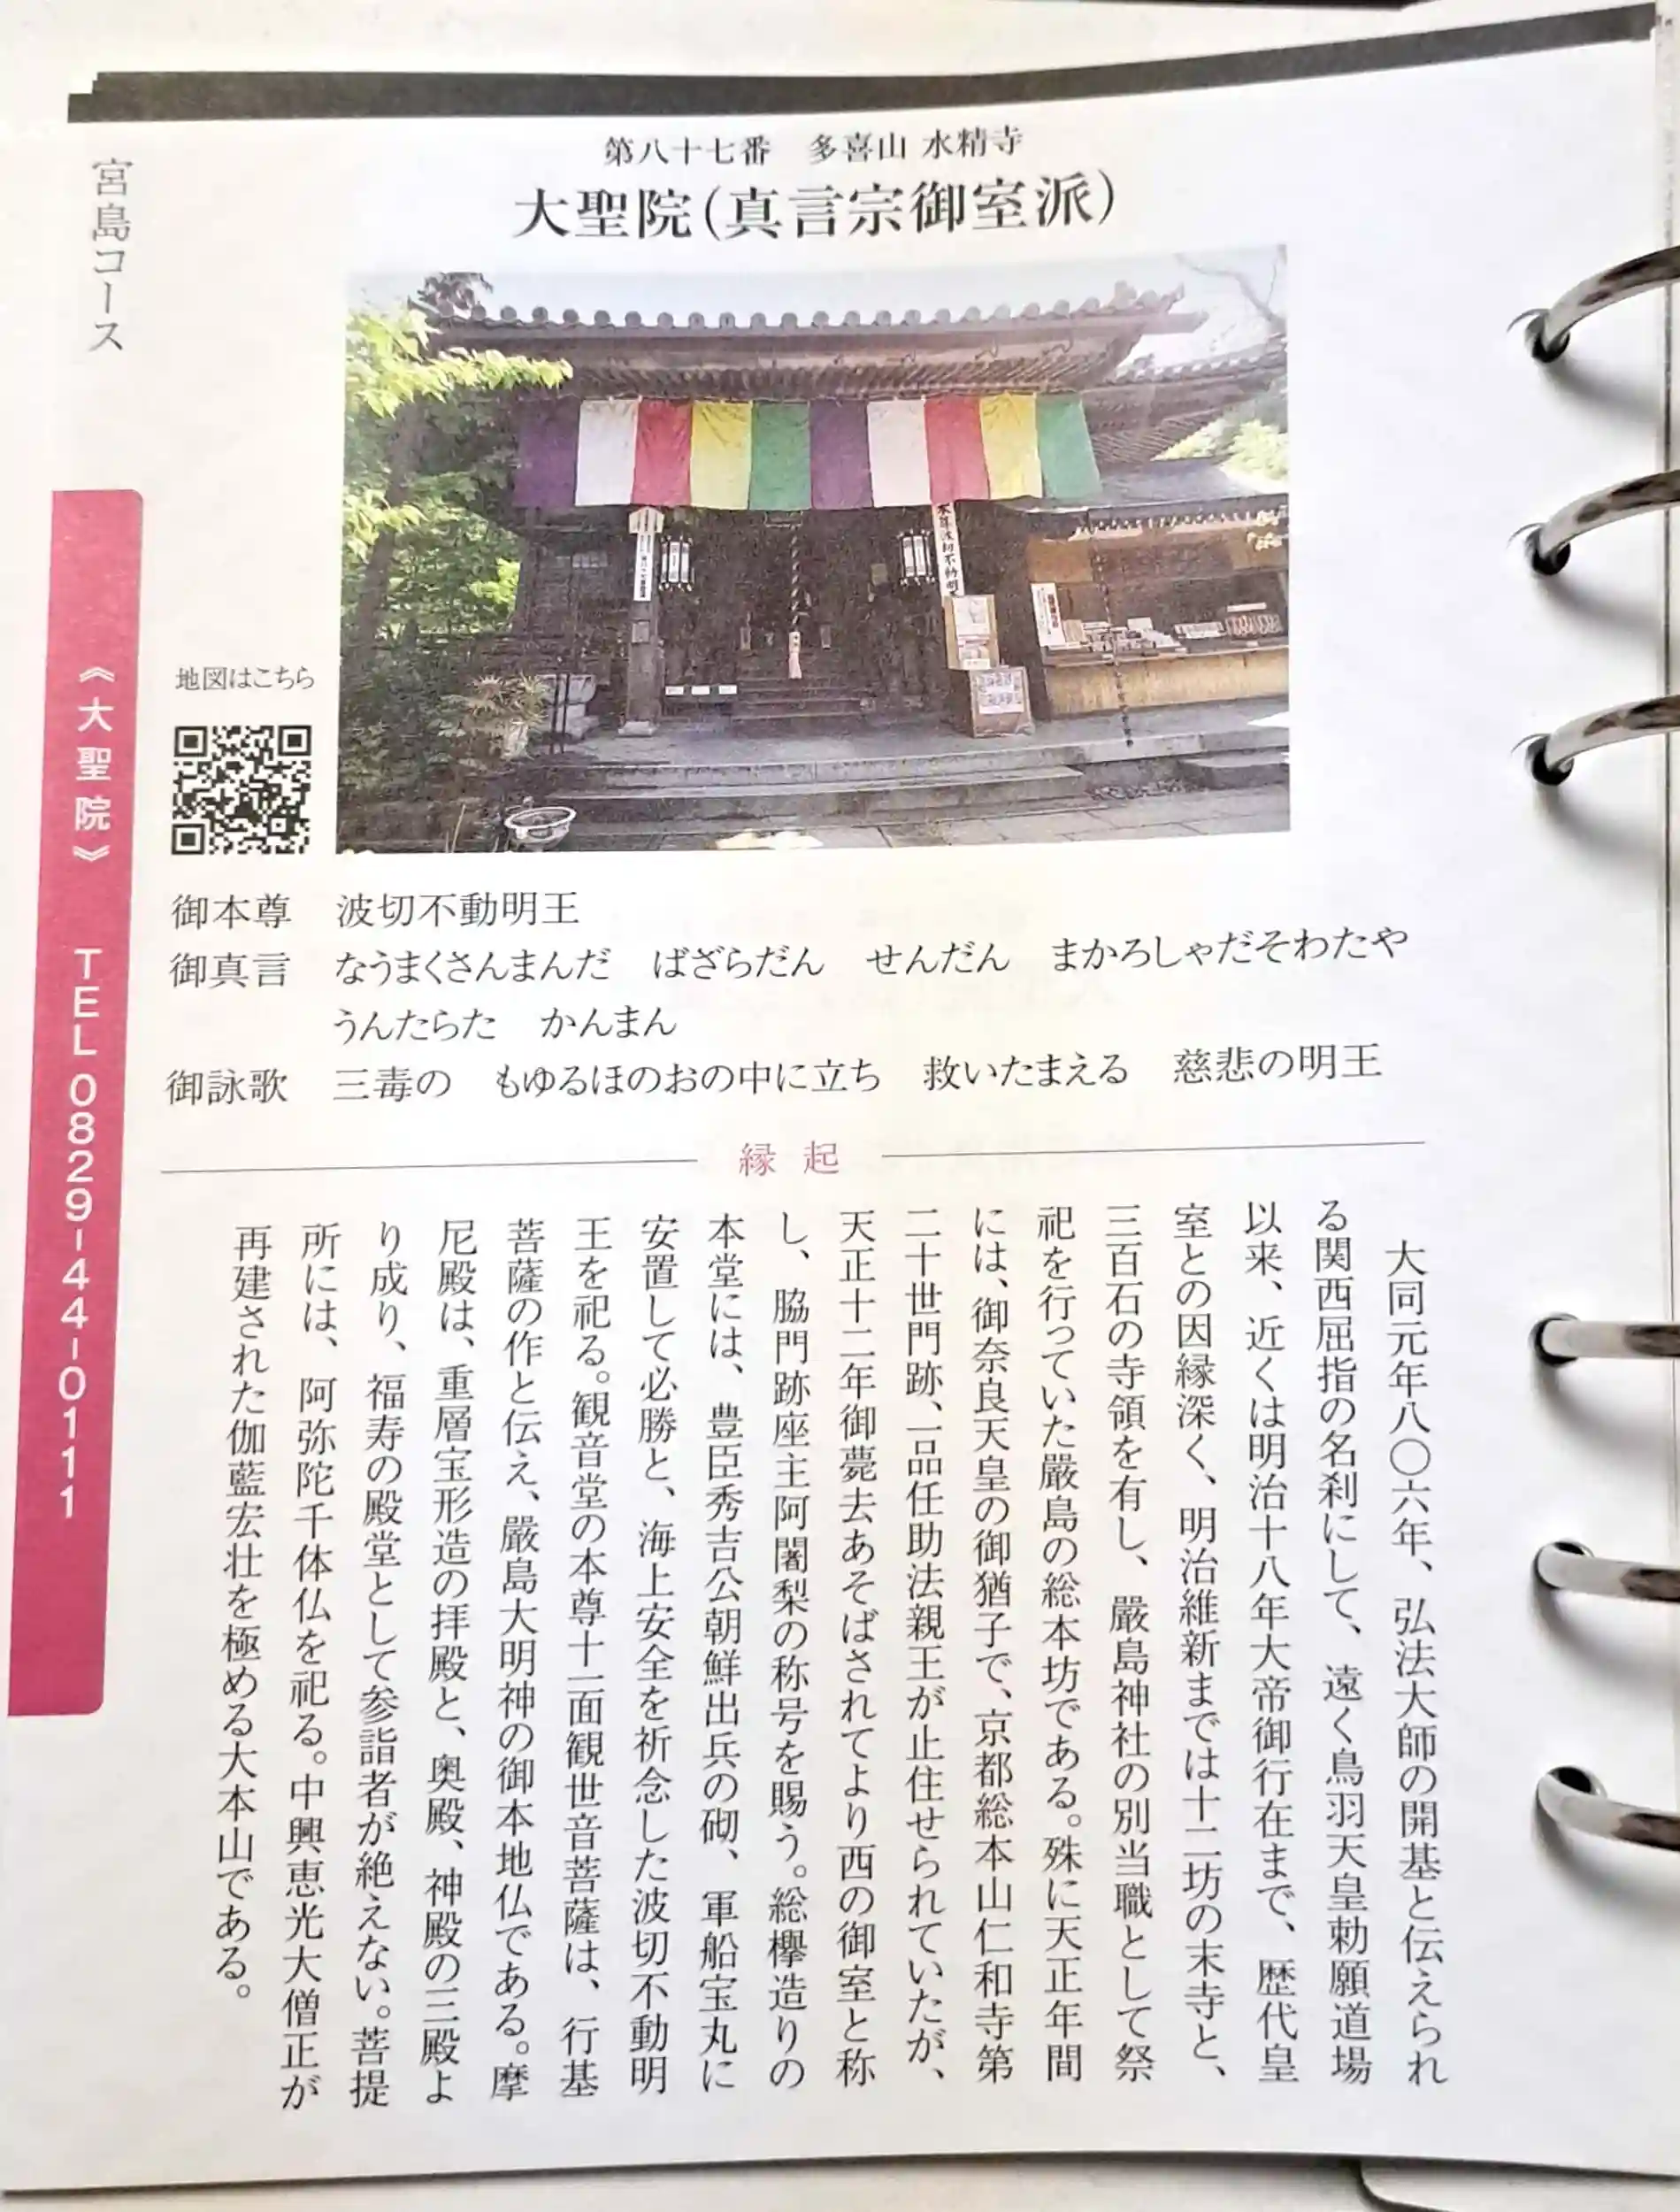 第八十七番　多喜山 水精寺
大聖院(真言宗御室派)
宮島コース
地図はこちら
《大聖院》　TEL 0829-44-0111
御本尊　波切不動明王
御真言　なうまくさんまんだ　ばざらだん　せんだん　まかろしゃだそわたや
うんたらた　かんまん
御詠歌　三毒の　もゆるほのおの中に立ち　救いたまえる　慈悲の明王
縁起
大同元年八〇六年、弘法大師の開基と伝えられ
る関西屈指の名刹にして、遠く鳥羽天皇勅願道場
以来、近くは明治十八年大帝御行在まで、歴代皇
室との因縁深く、明治維新までは十二坊の末寺と、
三百石の寺領を有し、嚴島神社の別当職として祭
祀を行っていた嚴島の総本坊である。殊に天正年間
には、御奈良天皇の御猶子で、京都総本山仁和寺第
二十世門跡、一品任助法親王が止住せられていたが、
天正十二年御薨去あそばされてより西の御室と称
し、脇門跡座主阿闍梨の称号を賜う。総欅造りの
本堂には、豊臣秀吉公朝鮮出兵の砌、軍船宝丸に
安置して必勝と、海上安全を祈念した波切不動明
王を祀る。観音堂の本尊十一面観世音菩薩は、行基
菩薩の作と伝え、嚴島大明神の御本地仏である。摩
尼殿は、重層宝形造の拝殿と、奥殿、神殿の三殿よ
り成り、福寿の殿堂として参詣者が絶えない。菩提
所には、阿弥陀千体仏を祀る。中興恵光大僧正が
再建された伽藍宏壮を極める大本山である。
本尊波切不動明